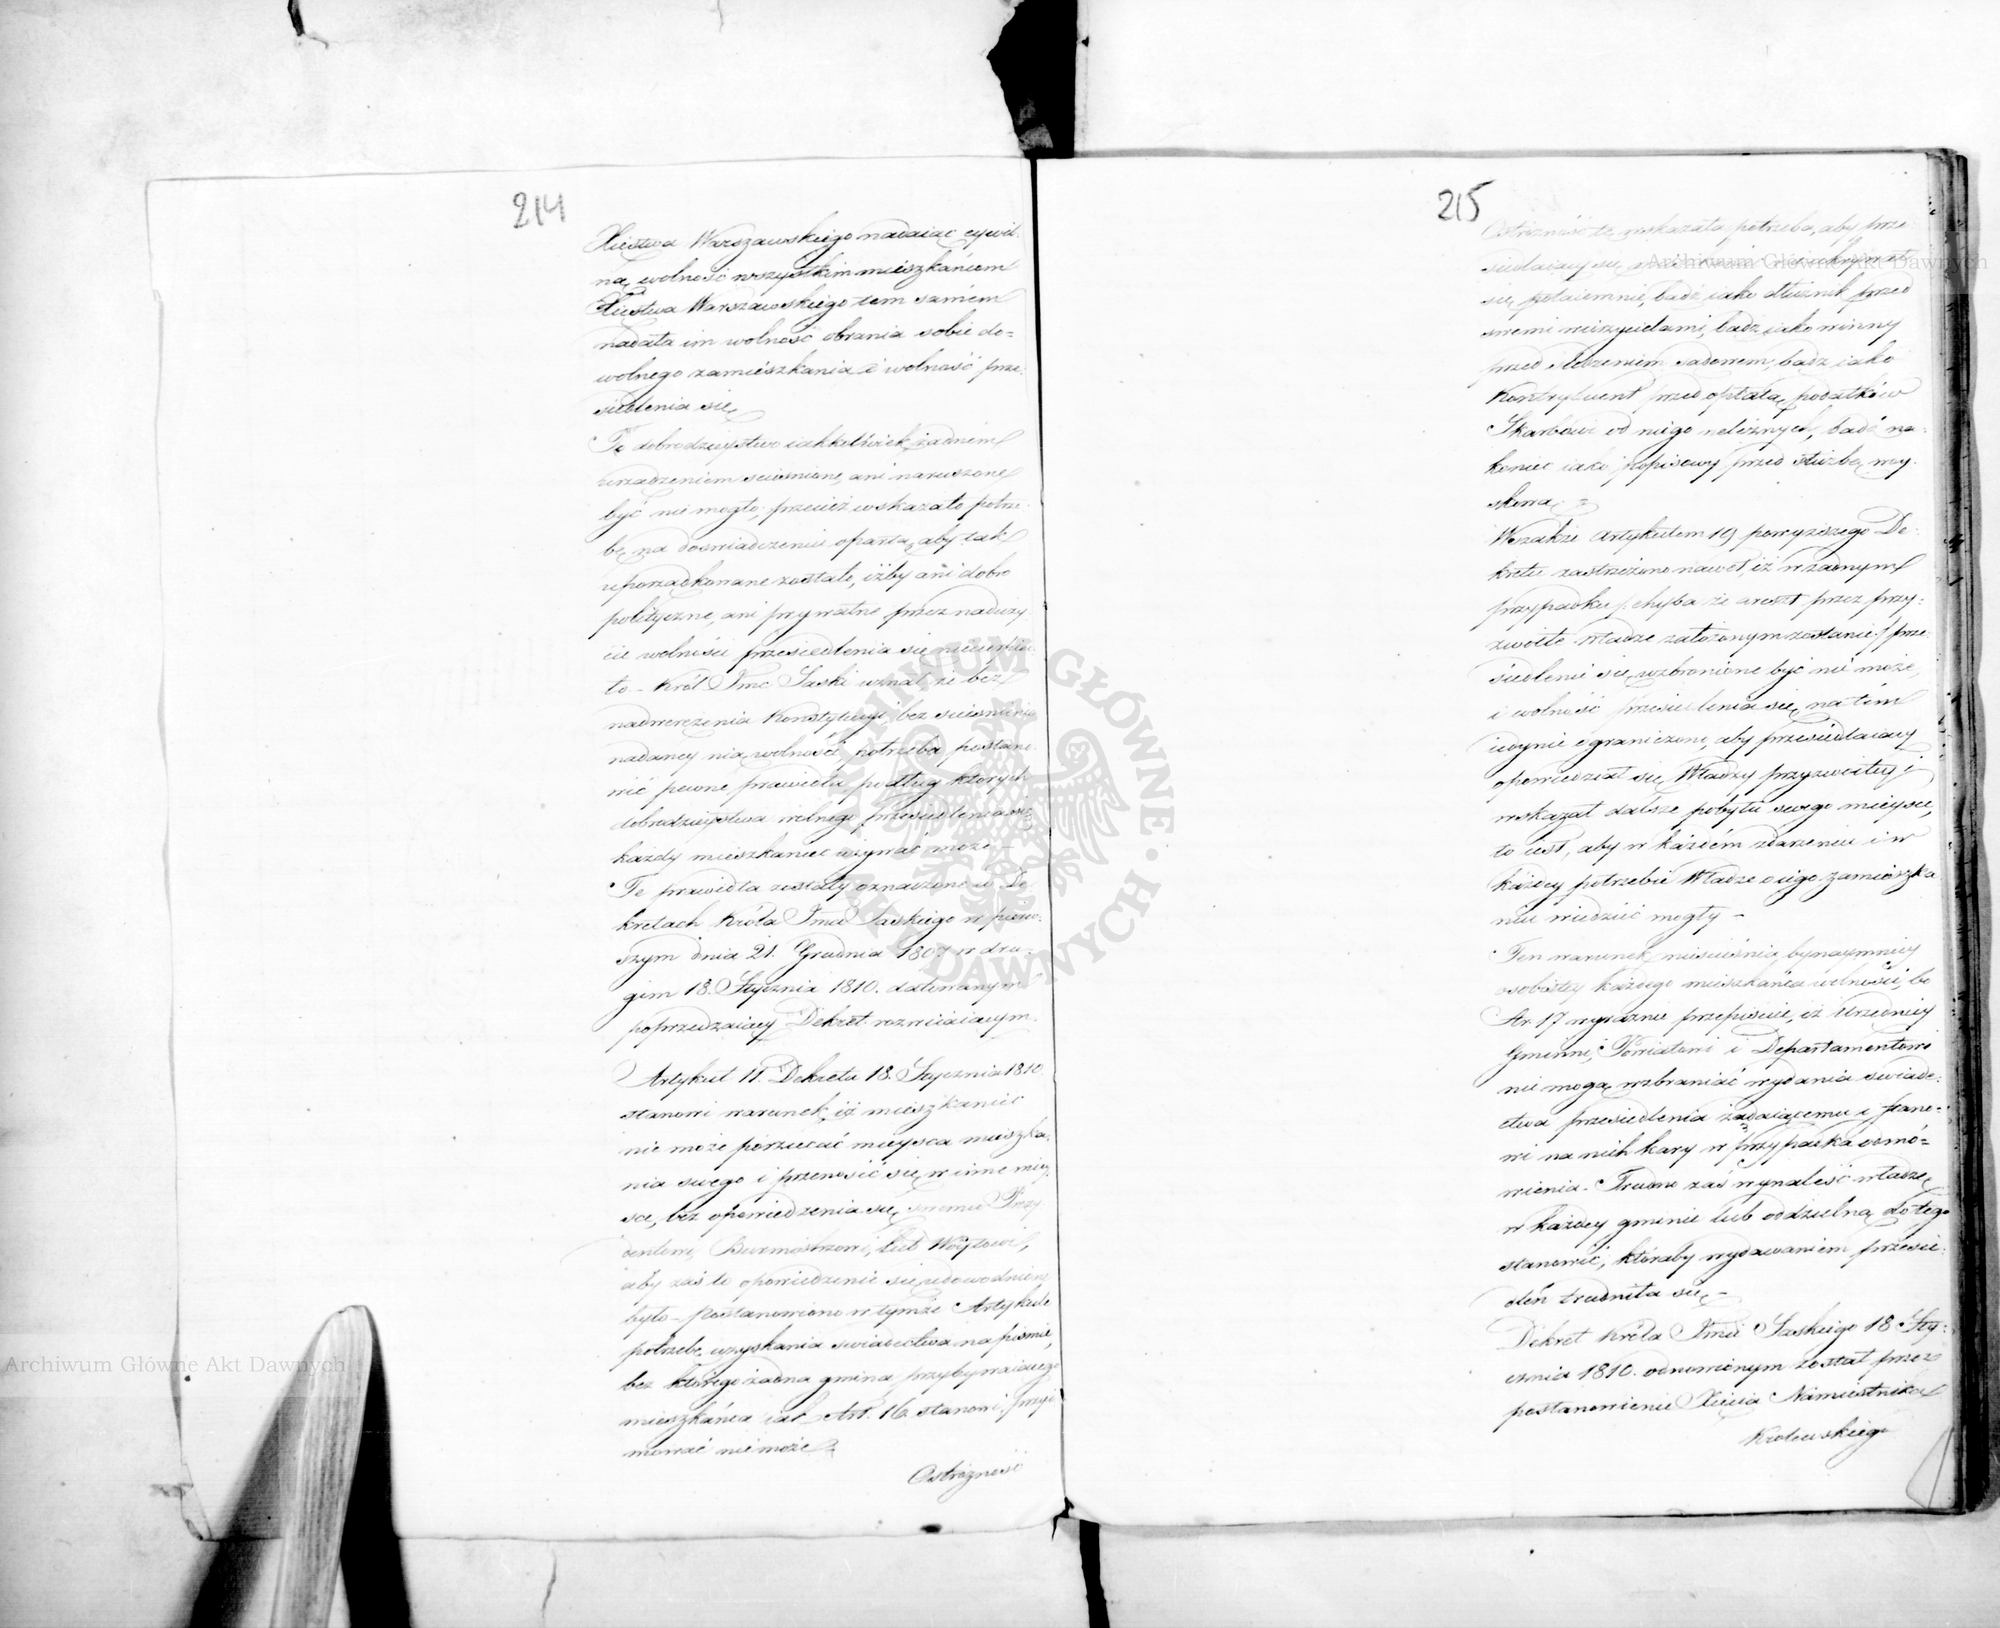 214
Xięstwa Warszawskiego nadaiąc cywil-
ną wolność wszystkim mieszkańcom
Xięstwa Warszawskiego tem samém
nadała im wolność obrania sobie do=
wolnego zamieszkania i wolność prze-
siedlenia się
To dobrodzieystwo iakkolwiek żadném
urządzeniem scieśnione, ani naruszone
być nie mogło, przecież wskazało potrze-
bę na doświadczeniu opartą, aby tak
uporządkowane zostało, iżby ani dobro
polityczne, ani prywatne przez naduży-
cie wolności przesiedlenia się nie cierpia-
ło - Król Jmć Saski uznał, że bez
nadwerężenia Konstytucyi, bez scieśnienia
nadaney nią wolności, potrzeba postano-
wić pewne prawidła podług których
dobrodzieystwa wolnego przesiedlenia się
każdy mieszkaniec używać może -
Te prawidła zostały oznaczone w De-
kretach Króla Jmci Saskiego w pierw-
szym dnia 21. Grudnia 1807 w dru-
gim 18. Stycznia 1810. datowanym
poprzedzaiący Dekret rozwiiaiącym.
Artykuł 11. Dekretu 18. Stycznia 1810
stanowi warunek, iż mieszkaniec
nie może porzucać mieysca mieszka-
nia swego i przenosić się w inne miey-
sce, bez opowiedzenia się swemu Prezy-
dentowi, Burmistrzowi, lub Wóytowi,
aby zaś to opowiedzenie się udowodnione
było - postanowiono w tymże Artykule
potrzebę uzyskania świadectwa na piśmie,
bez którego żadna gmina przybywaiącego
mieszkańca iak Art. 16 stanowi przyi-
mować nie może
Ostrożność
215
Ostrożność tę wskazała potrzeba, aby prze-
siedlaiący się mieszkaniec nie ukrywał
się potaiemnie, bądź iako dłużnik przed
swemi wierzycielami, bądź iako winny
przed śledzeniem sądowem, bądź iako
Kontrybuent przed opłatą podatków
Skarbowi od niego należnych, bądź na-
koniec iako popisowy przed służbą woy-
skową
Wszakże Artykułem 19 powyższego De-
kretu zastrzeżono nawet, iż w żadnym
przypadku /: chyba że areszt przez przy-
zwoite władze założonym zostanie :/ prze-
siedlenie się wzbronione być nie może,
i wolność przesiedlenia się na tém
iedynie ograniczono, aby przesiedlaiący
opowiedział się Władzy przyzwoitey i
wskazał dalsze pobytu swego mieysce,
to iest, aby w każdém zdarzeniu i w
każdey potrzebie Władze o iego zamieszka-
niu wiedzieć mogły -
Ten warunek nieścieśnia bynaymniey
osobistey każdego mieszkańca wolności, bo
Ar. 17 wyraźnie przepisuie, iż Urzędnicy
Gminni, Powiatowi i Departamentowi
nie mogą wzbraniać wydania świade-
ctwa przesiedlenia żądaiącemu i stano-
wi na nich kary w przypadku odmó=
wienia - Trudno zaś wynaleść władzę
w każdey gminie lub oddzielną do tego
stanowić, któraby wydawaniem przesie-
dleń trudniła się -
Dekret Króla Jmci Saskiego 18 Sty-
cznia 1810. odnowionym został przez
postanowienie Xięcia Namiestnika
Królewskiego
Archiwum Główne Akt Dawnych
Archiwum Główne Akt Dawnych
ARCHIWUM GŁÓWNE AKT DAWNYCH